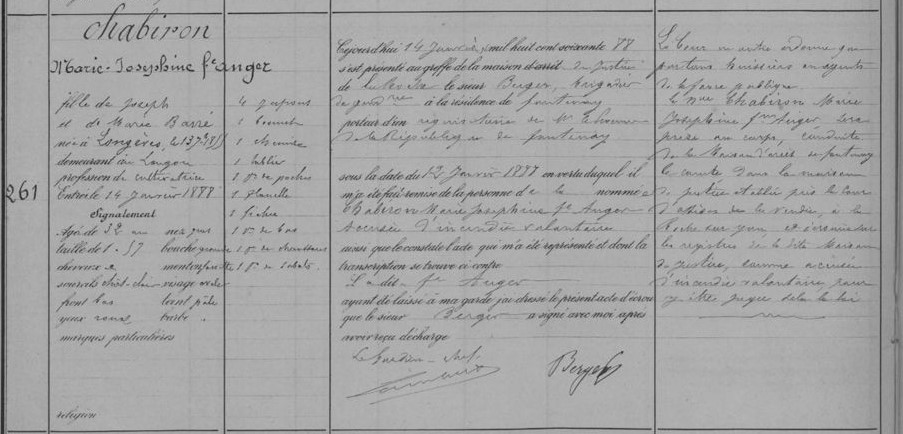 261
Chabiron
Marie-Josephine fe Anger
fille de Joseph
et de Marie Barré
né à Longères, le 13 7bre 1855
demeurant à Langon
profession de cultivatrice
Entré le 14 Janvier 1888
Signalement
Agé de 32 ans nez gros
taille de 1 57 bouche grande
cheveux menton
sourcils chât-clair visage ovale
front bas teint pâle
yeux roux barbe
marques particulières
religion
4 jupons
1 bonnet
1 chemise
1 tablier
1 pre de poches
1 flanelle
1 fichu
1 pre de bas
1 pre de chaussons
1 pre de sabots
Cejourd'hui 14 Janvier mil huit cent soixante 88
s'est présenté au greffe de la maison d'arrêt de Justice
de la Roche le sieur Berger, brigadier
de gendrie à la résidence de fontenay
porteur d'en réquisitoire de Mr
de la République de fontenay
sous la date du 12 Janvier 1888 en vertu duquel il
m'a été fait remise de la personne de la nommée
Chabiron Marie Josephine fe Anger
accusée d'incendie volontaire
ainsi que le constate l'acte qui m'a été représenté et dont la
transcription se trouve ci contre
Il a dit fe Anger
ayant été laissé à ma garde j'ai dressé le présent acte d'écrou
que le sieur Berger a signé avec moi après
avoir reçu décharge
Le Gardien-Chef
Berger
La Cour en outre ordonne que
par tous huissiers ou agents
de la force publique
la née Chabiron Marie
Josephine fme Anger sera
prise au corps, conduite
de la Maison d'arrêt de fontenay
le comte dans la maison
de justice établie près la cour
d'assises de la Vendée, à la
Roche sur yon et écrouée sur
les registres de la dite Maison
de justice, comme accusée
d'incendie volontaire pour
y être jugée selon la loi